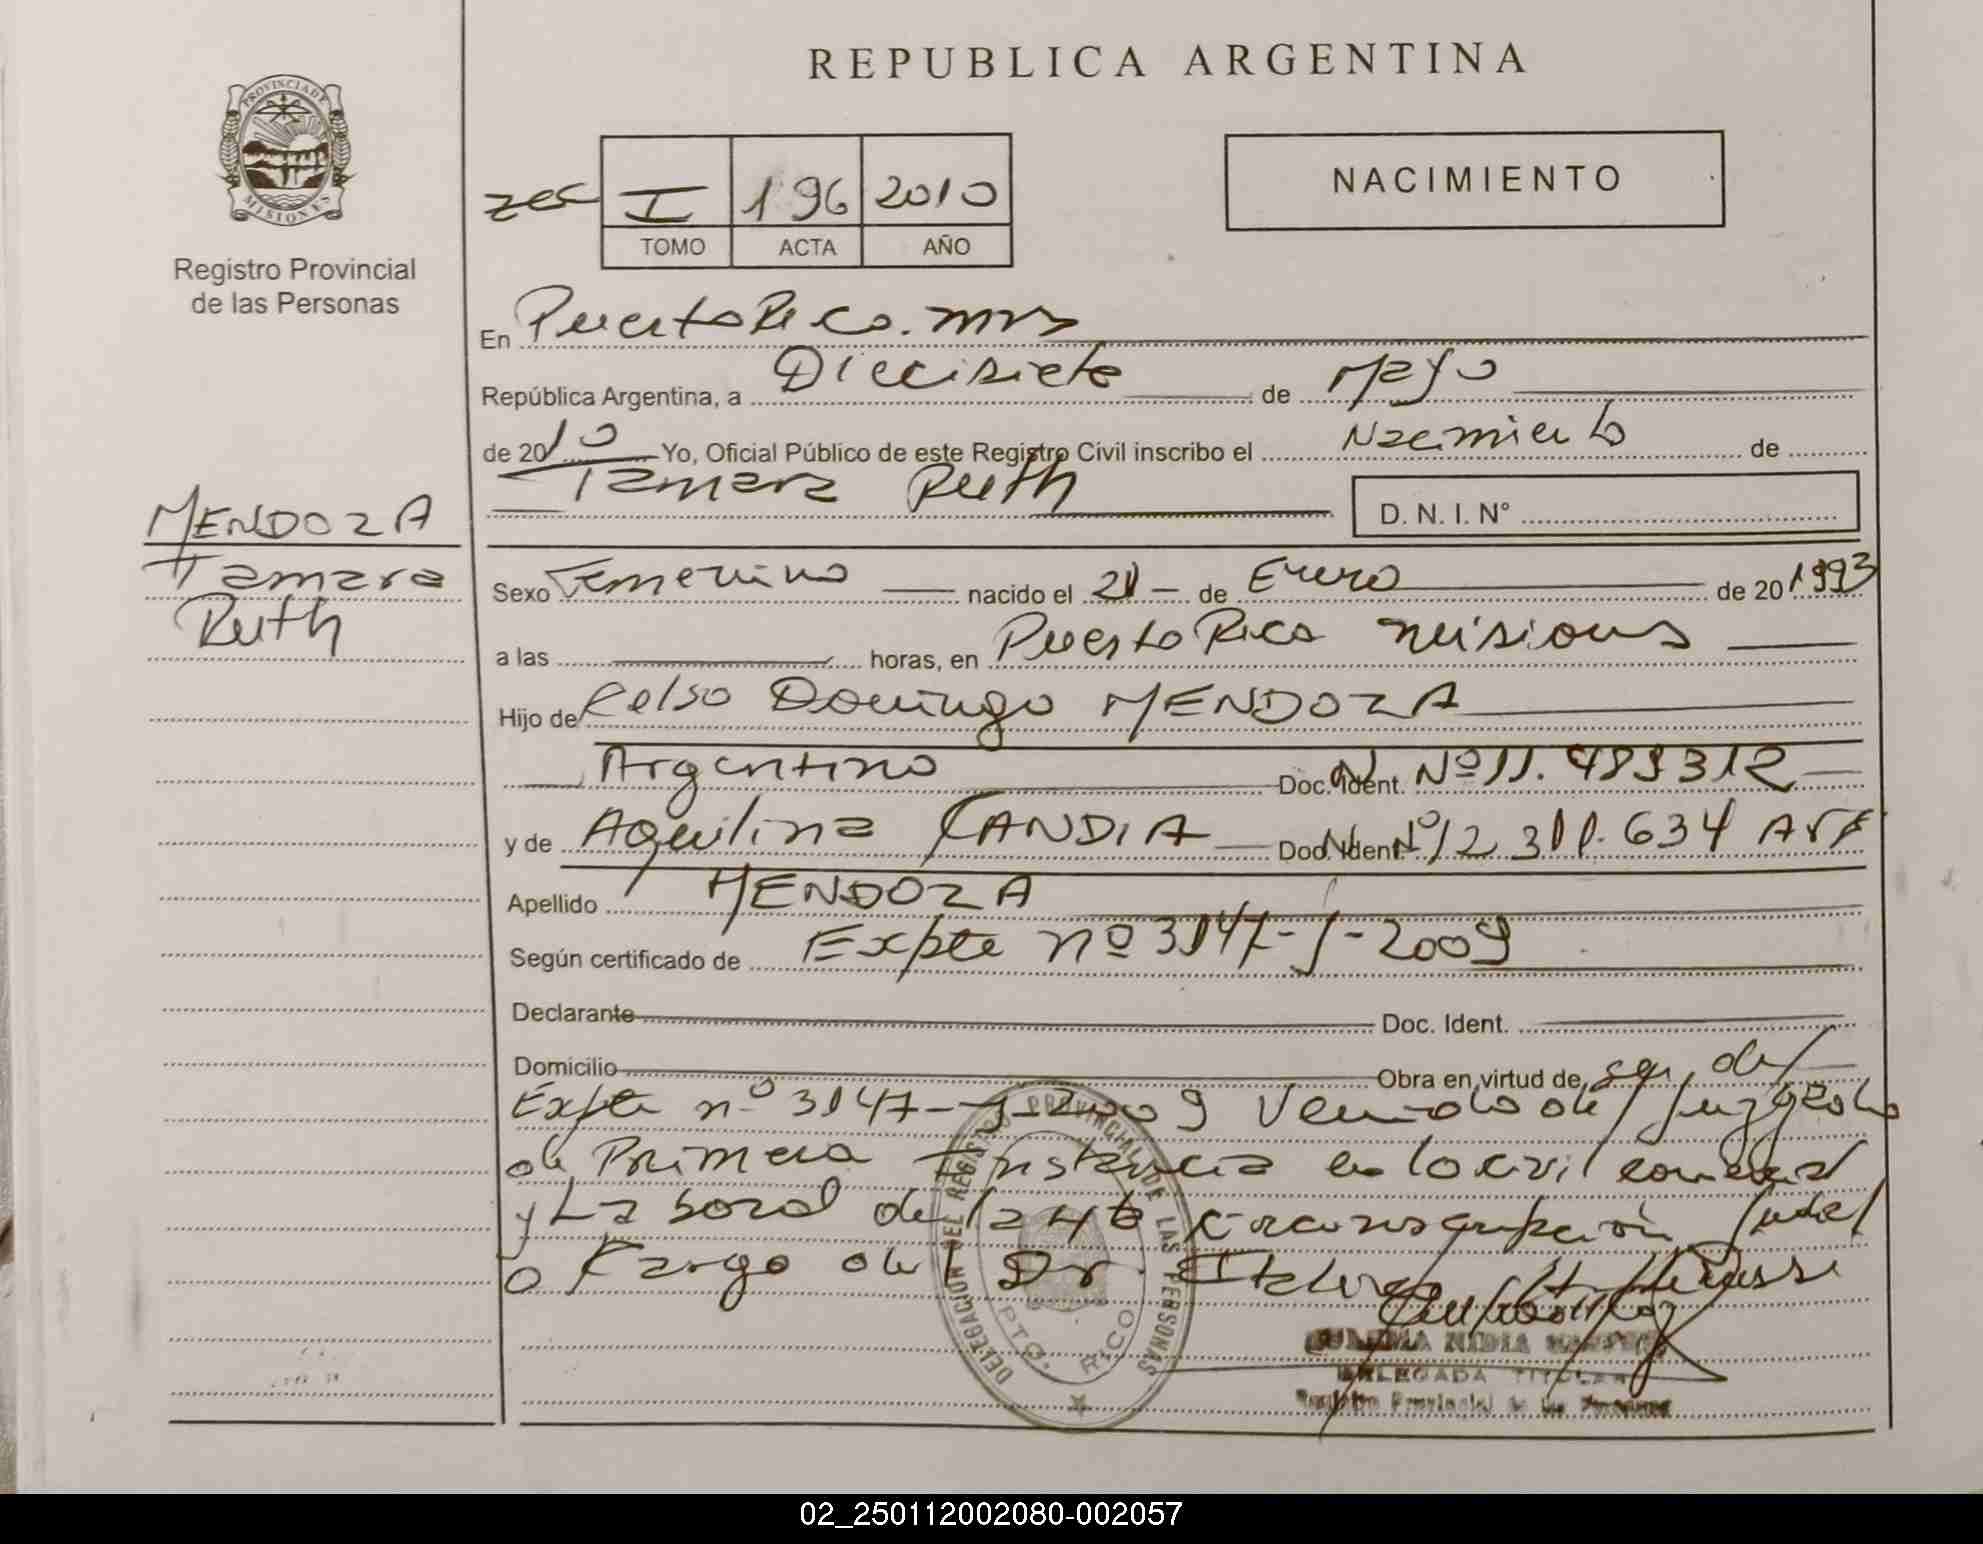 REPUBLICA ARGENTINA
PROVINCIA DE MISIONES
Registro Provincial
de las Personas
I 196 2010
TOMO ACTA AÑO
NACIMIENTO
En Puerto Rico. mns
República Argentina, a Diecisiete de Mayo
de 2010 Yo, Oficial Público de este Registro Civil inscribo el Nacimiento de
Tamara Ruth
D. N. I. Nº
MENDOZA
Tamara
Ruth
Sexo Femenino nacido el 21 de Enero de 20 1993
a las horas, en Puerto Rico misiones
Hijo de Celso Domingo MENDOZA
Argentino Doc. Ident. Nº 11.489312
y de Aquilina CANDIA Doc. Ident. Nº 12.311.634
Apellido MENDOZA
Según certificado de Expte nº 3147-J-2009
Declarante Doc. Ident.
Domicilio Obra en virtud de
Expte nº 3147-J-2009 Venido del Juzgado
de Primera Instancia en lo civil comercial
y Laboral de la 4ta circunscripción Judal
a Cargo del Dr.
DELEGACION DEL REGISTRO PROVINCIAL DE LAS PERSONAS
PTO. RICO
ZULEMA NIDIA
DELEGADA TITULAR
Registro Provincial de las Personas
02_250112002080-002057